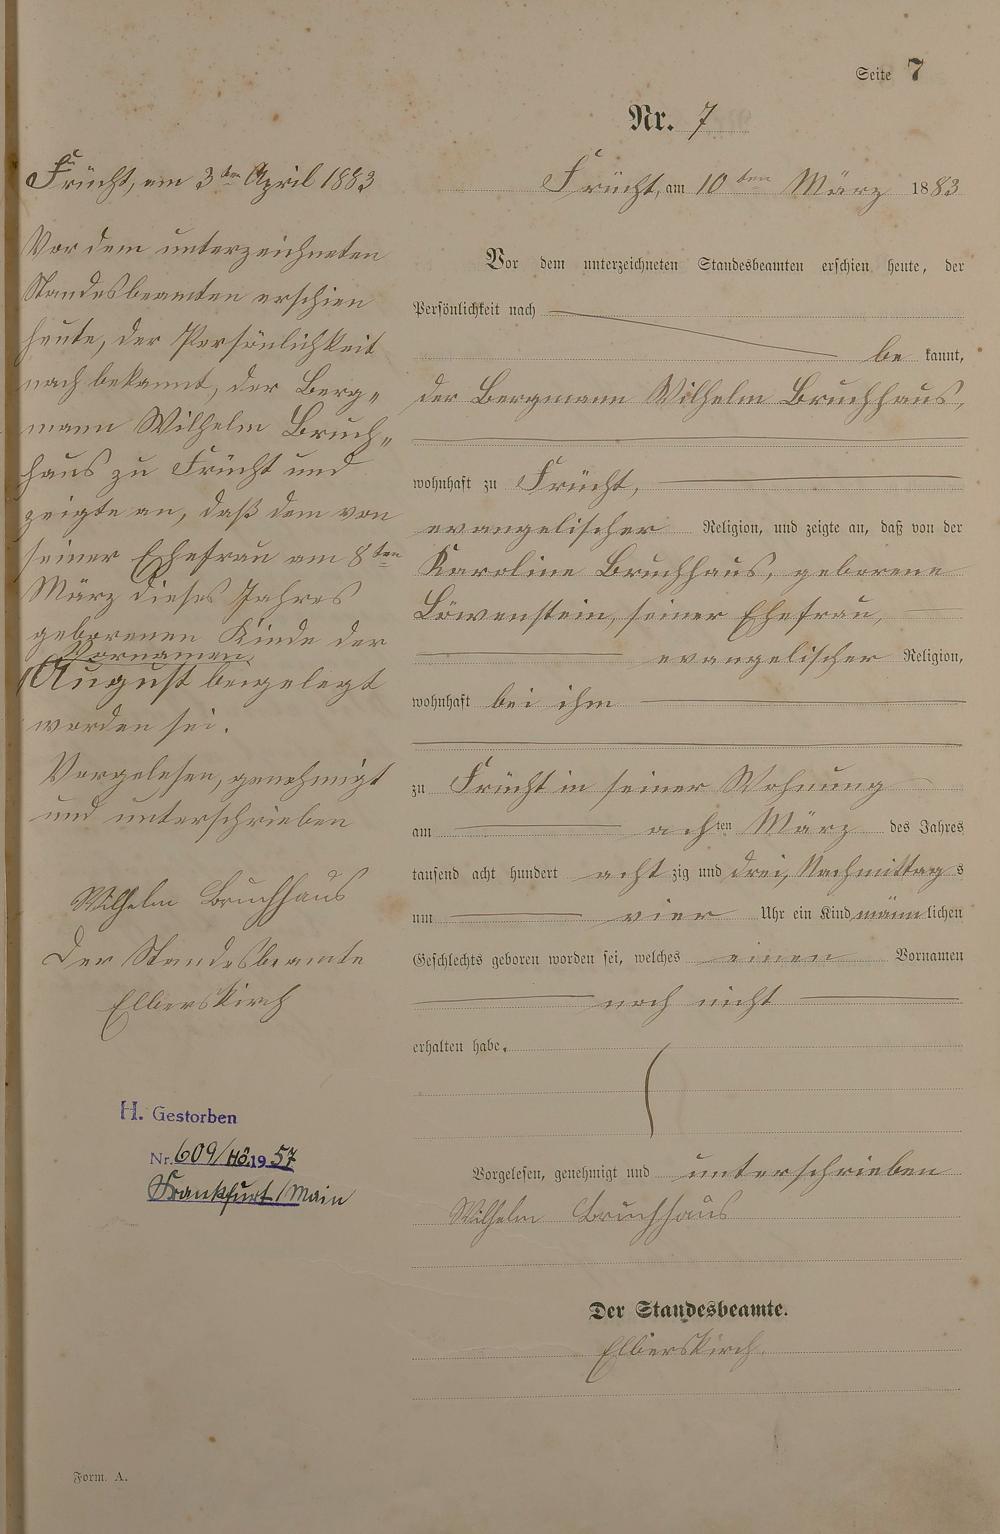 Seite 7
Nr. 7
Frücht, am 3ten April 1883
Vor dem unterzeichneten
Standesbeamten erschien
heute, der Persönlichkeit
nach bekannt, der Berg„
mann Wilhelm Bruch„
haus zu Frücht und
zeigte an, daß dem von
seiner Ehefrau am 8ten
März dieses Jahres
geborenen Kinde der
Vornamen
August beigelegt
worden sei.
Vorgelesen, genehmigt
und unterschrieben
Wilhelm Bruchhaus
Der Standesbeamte
Elberskirch
H. Gestorben
Nr. 609/Hö.1957
Frankfurt/Main
Frücht, am 10ten März 1883
Vor dem unterzeichneten Standesbeamten erschien heute, der
Persönlichkeit nach
be kannt,
der Bergmann Wilhelm Bruchhaus,
wohnhaft zu Frücht,
evangelischer Religion, und zeigte an, daß von der
Karoline Bruchhaus, geborene
Löwenstein, seiner Ehefrau,
evangelischer Religion,
wohnhaft bei ihm
zu Frücht in seiner Wohnung
am achten März des Jahres
tausend acht hundert acht zig und drei, Nachmittag s
um vier Uhr ein Kind männlichen
Geschlechts geboren worden sei, welches einen Vornamen
noch nicht
erhalten habe.
Vorgelesen, genehmigt und unterschrieben
Wilhelm Bruchhaus
Der Standesbeamte.
Elberskirch.
Form. A.